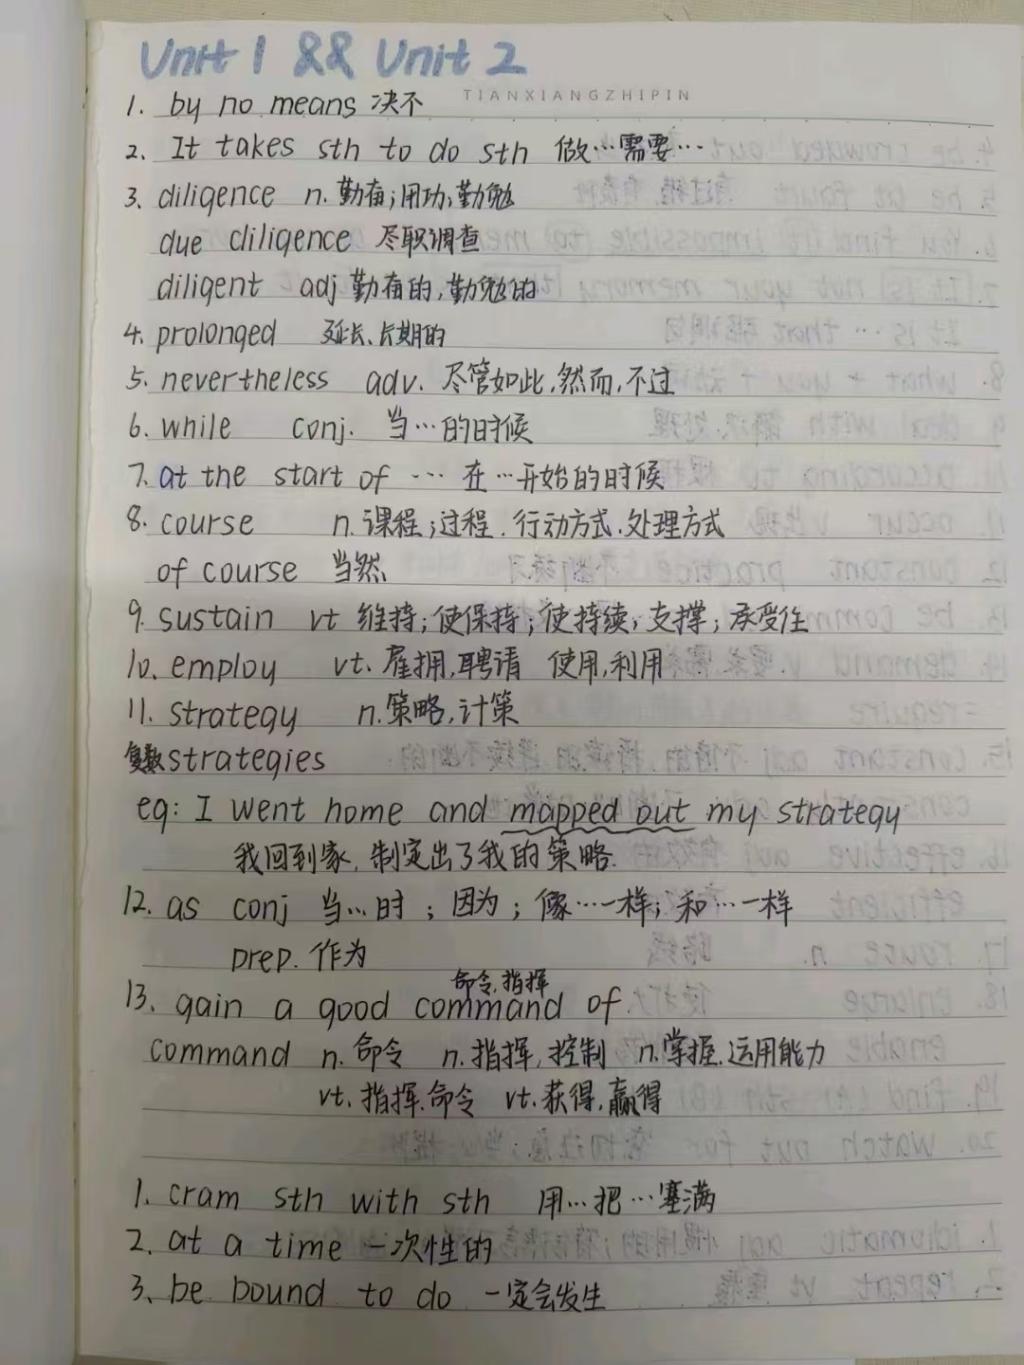 Unit 1 && Unit 2
TIANXIANGZHIPIN
1. by no means 决不
2. It takes sth to do sth 做…需要…
3、diligence n. 勤奋;用功;勤勉
due diligence 尽职调查
diligent adj 勤奋的,勤勉的
4. prolonged 延长、长期的
5. nevertheless adv. 尽管如此,然而,不过
6. while conj. 当…的时候
7. at the start of … 在…开始的时候
8. course n. 课程;过程.行动方式.处理方式
of course 当然
9. sustain vt 维持;使保持;使持续,支撑;承受住
10. employ vt. 雇拥,聘请 使用,利用
11. strategy n. 策略,计策
复数 strategies
eg: I went home and mapped out my strategy
我回到家,制定出了我的策略.
12. as conj 当…时;因为;像…一样;和…一样
prep. 作为
命令.指挥
13. gain a good command of
command n. 命令 n. 指挥,控制 n. 掌握.运用能力
vt. 指挥.命令 vt. 获得,赢得
1. cram sth with sth 用…把…塞满
2. at a time 一次性的
3、be bound to do 一定会发生